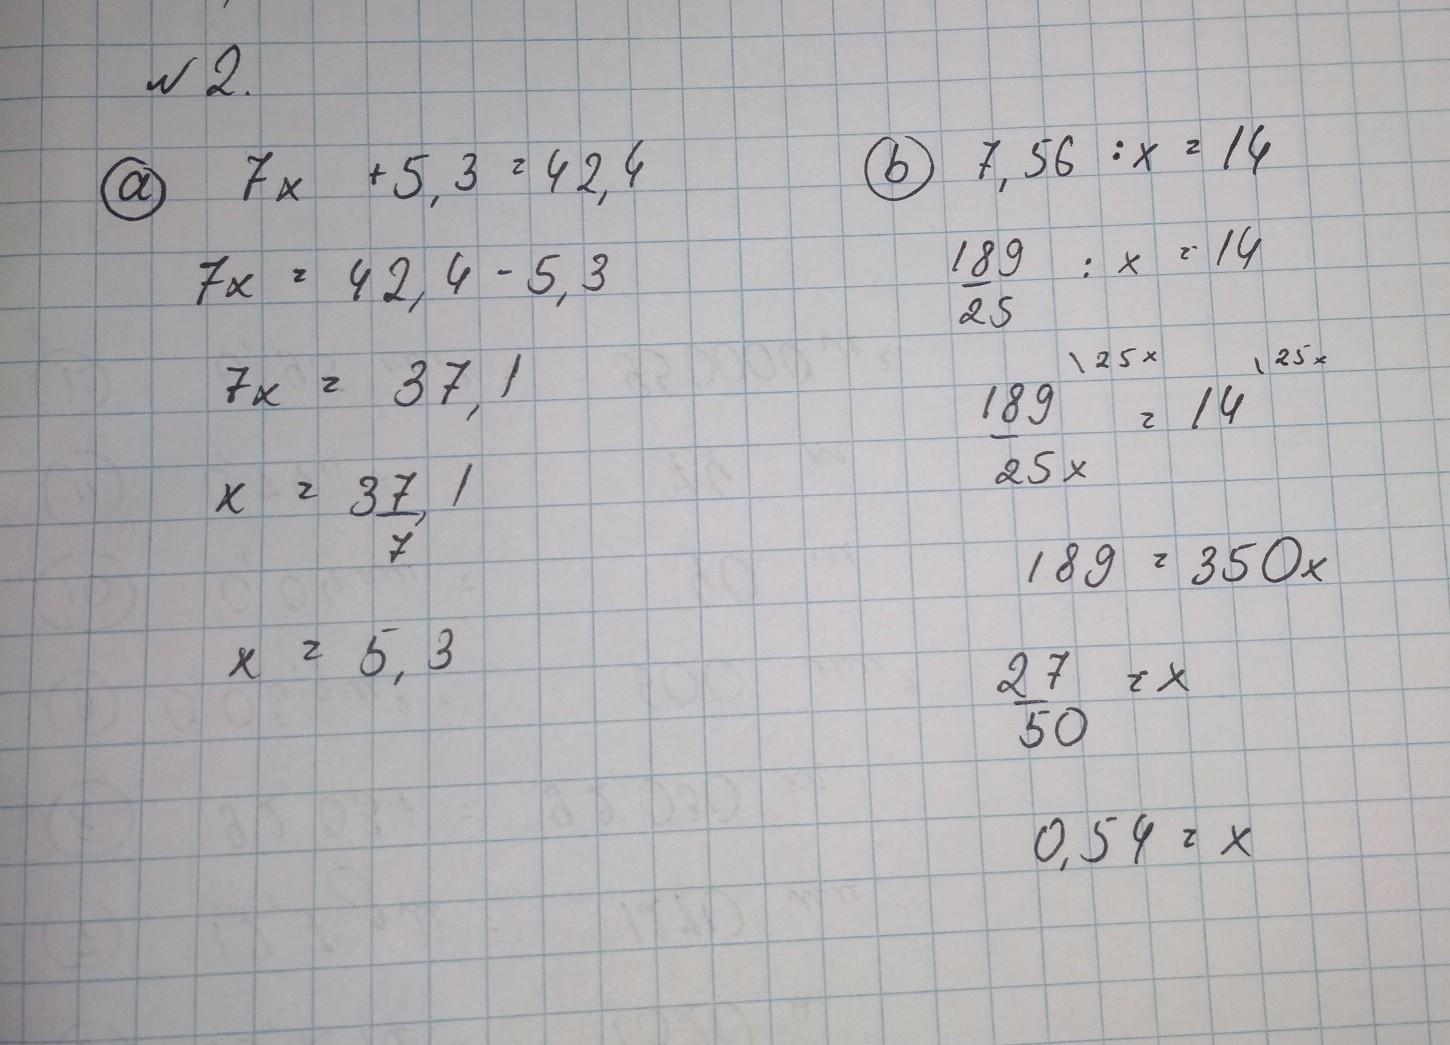 № 2.
a 7x + 5,3 = 42,4
7x = 42,4 - 5,3
7x = 37,1
x = 37,1/7
x = 5,3
b 7,56 : x = 14
189/25 : x = 14
189/25x \25x = 14 \25x
189 = 350x
27/50 = x
0,54 = x